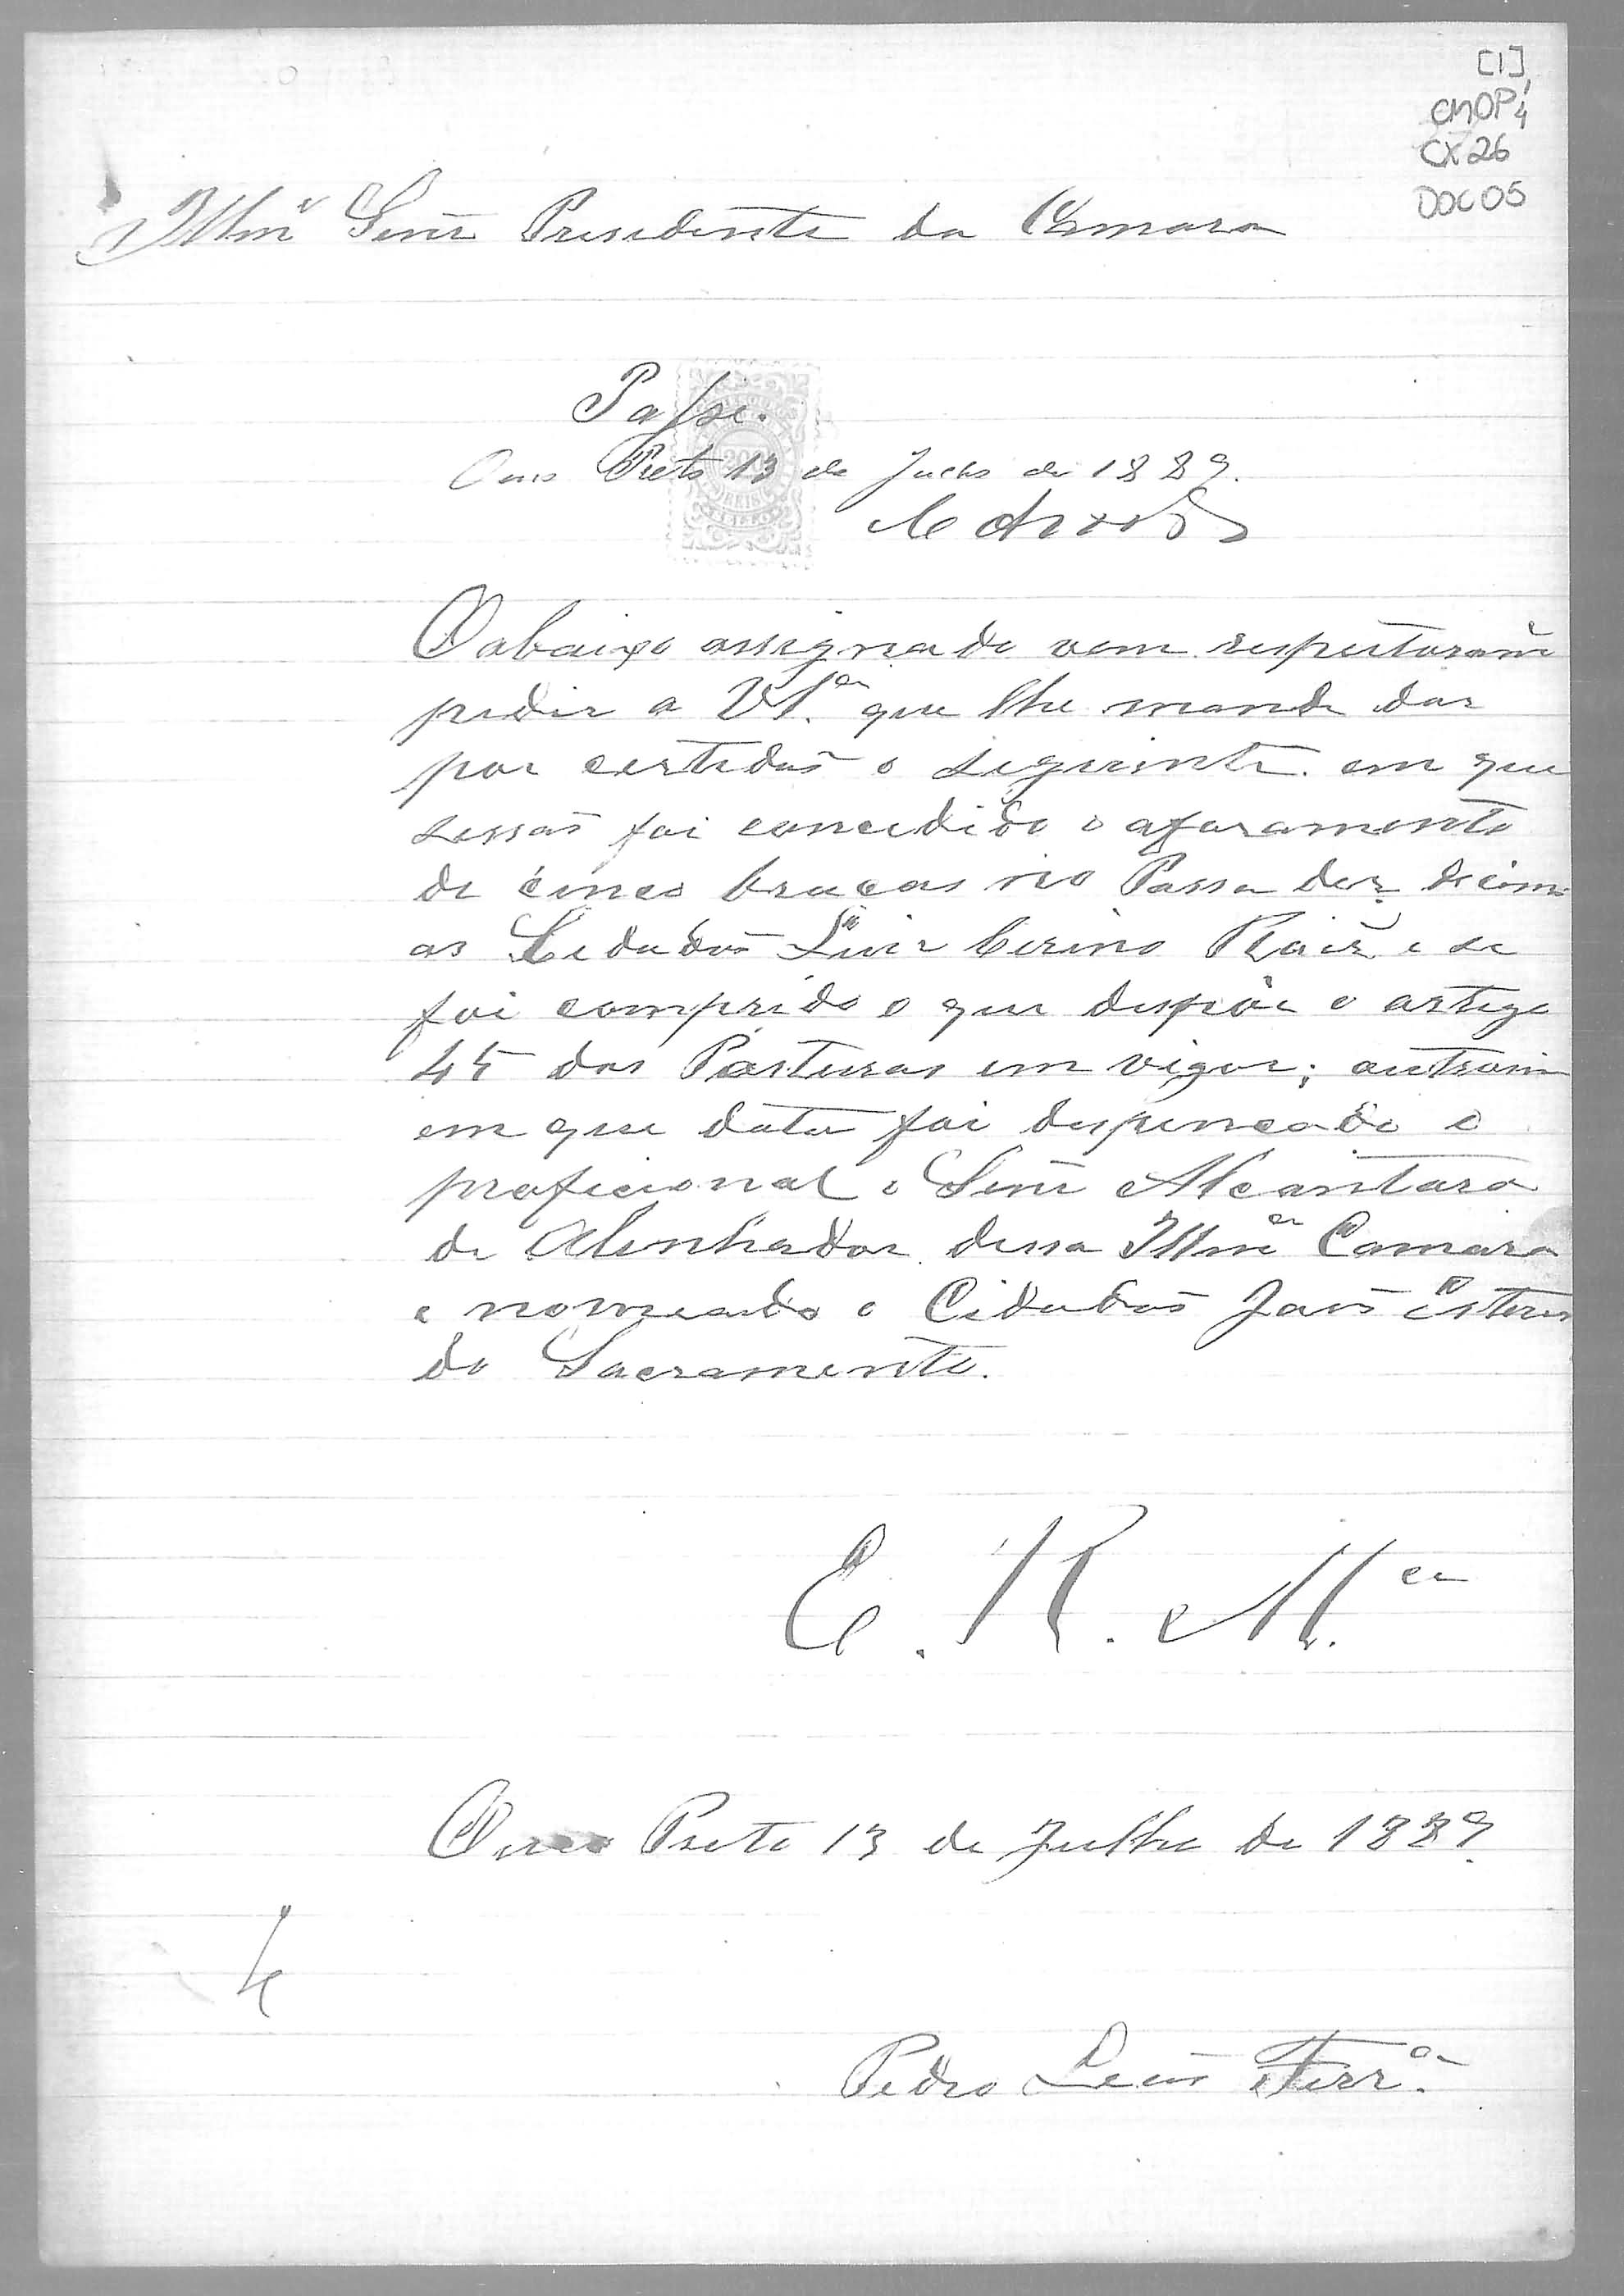 [1]
CMOP,
CX 26
DOC 05
Illmº Senr Presidente da Camara
Passe.
Ouro Preto 13 de Julho de 1889.
THESOURO
200
REIS
O abaixo assignado vem respeitosamᵉ
pedir a V Sª que lhe mande dar
por certidaõ o seguinte em que
sessaõ foi concedido o aforamento
de cinco braças no Passa dez de cima
ao Cidadaõ Luiz Cirino e se
foi comprido o que dispõe o artigo
45 das Posturas em vigor; outrosim
em que data foi despençado o
proficional o Senr Alcantara
de Alinhador dessa Illmª Camara
e nomeado o Cidadaõ Joaõ Esteves
do Sacramento.
E. R. M.ce
Ouro Preto 13 de Julho de 1889
Pedro Leaõ Ferrª